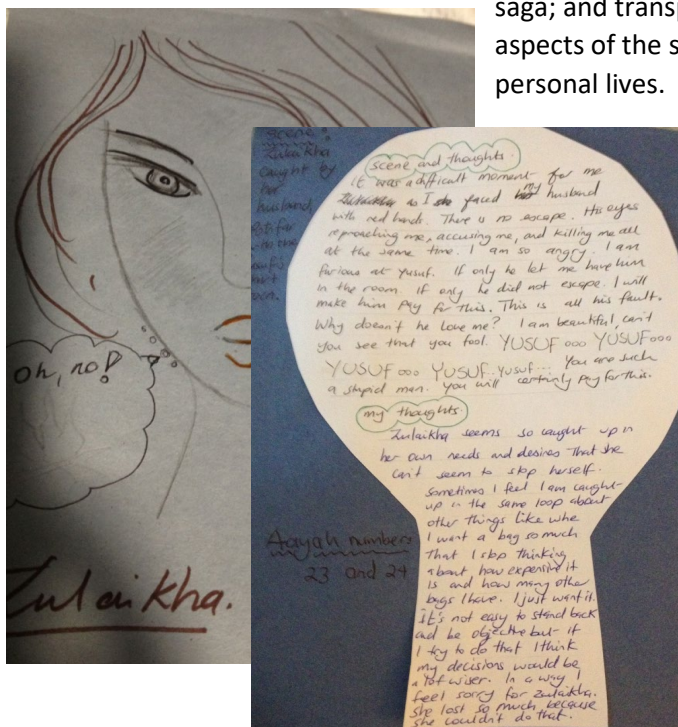 saga; and transp
aspects of the s
personal lives.
oh, no!
Zulaikha.
Zulaikha
caught by
her
husband,
Aayah numbers
23 and 24
scene and thoughts.
It was a difficult moment for me
as I faced my husband
with red hands. There is no escape. His eyes
reproaching me, accusing me, and killing me all
at the same time. I am so angry. I am
furious at Yusuf. If only he let me have him
in the room. If only he did not escape. I will
make him pay for this. This is all his fault.
Why doesn't he love me? I am beautiful, can't
you see that you fool. YUSUF ooo YUSUF ooo
YUSUF ooo YUSUF.. YUSUF... You are such
a stupid man. you will certainly pay for this.
my thoughts.
Zulaikha seems so caught up in
her own needs and desires that she
can't seem to stop herself.
sometimes I feel I am caught
up in the same loop about
other things like whe
I want a bag so much
that I stop thinking
about how expensive it
is and how many other
bags I have. I just want it.
it's not easy to stand back
and be objective but if
I try to do that I think
my decisions would be
a lot wiser. In a way I
feel sorry for Zulaikha.
She lost so much because
she couldn't do that